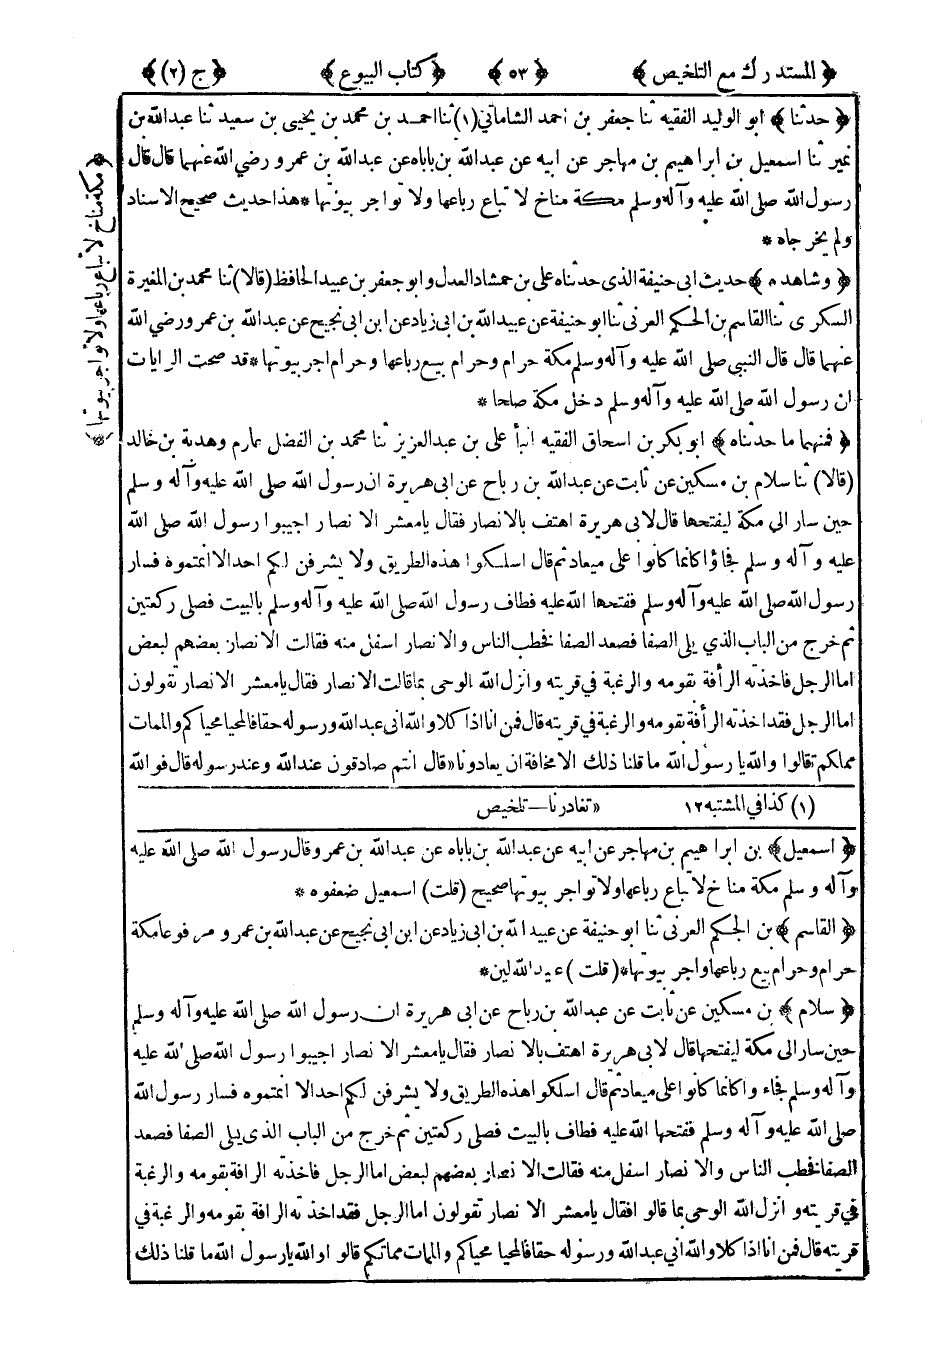 ﴿ المستدرك مع التلخيص ﴾ ﴿ ٥٣ ﴾ ﴿ كتاب البيوع ﴾ ﴿ ج (٢) ﴾
﴿ حدثنا ﴾ ابو الوليد الفقيه ثنا جعفر بن احمد الشاماتي (١) ثنا احمد بن محمد بن يحيى بن سعيد ثنا عبدالله بن
نمير ثنا اسمعيل بن ابراهيم بن مهاجر عن ابيه عن عبدالله بن باباه عن عبدالله بن عمرو رضي الله عنهما قال قال
رسول الله صلى الله عليه وآله وسلم مكة مناخ لا تباع رباعها ولا تواجر بيوتها * هذا حديث صحيح الاسناد
ولم يخرجاه *
﴿ وشاهده ﴾ حديث ابى حنيفة الذى حدثناه على بن حمشاد العدل وابو جعفر بن عبيد الحافظ (قالا) ثنا محمد بن المغيرة
السكرى ثنا القاسم بن الحكم العرنى ثنا ابو حنيفة عن عبيدالله بن ابى زياد عن ابن ابى نجيح عن عبدالله بن عمرو رضي الله
عنهما قال قال النبي صلى الله عليه وآله وسلم مكة حرام وحرام بيع رباعها وحرام اجر بيوتها * قد صحت الرايات
ان رسول الله صلى الله عليه وآله وسلم دخل مكة صلحا *
﴿ فمنها ما حدثناه ﴾ ابو بكر بن اسحاق الفقيه انبأ على بن عبدالعزيز ثنا محمد بن الفضل عارم وهدبة بن خالد
(قالا) ثنا سلام بن مسكين عن ثابت عن عبدالله بن رباح عن ابى هريرة ان رسول الله صلى الله عليه وآله وسلم
حين سار الى مكة ليفتحها قال لابى هريرة اهتف بالانصار فقال يا معشر الانصار اجيبوا رسول الله صلى الله
عليه وآله وسلم فجاؤا كانما كانوا على ميعاد ثم قال اسلكوا هذه الطريق ولا يشرفن لكم احد الا انمتموه فسار
رسول الله صلى الله عليه وآله وسلم ففتحها الله عليه فطاف رسول الله صلى الله عليه وآله وسلم بالبيت فصلى ركعتين
ثم خرج من الباب الذي يلى الصفا فصعد الصفا فخطب الناس والانصار اسفل منه فقالت الانصار بعضهم لبعض
اما الرجل فاخذته الرأفة بقومه والرغبة في قريته وانزل الله الوحى بما قالت الانصار فقال يا معشر الانصار تقولون
اما الرجل فقد اخذته الرأفة بقومه والرغبة في قريته قال فمن انا اذا كلا والله انى عبدالله ورسوله حقا فالمحيا محياكم والممات
مماتكم قالوا والله يا رسول الله ما قلنا ذلك الا مخافة ان يعادونا « قال انتم صادقون عند الله وعند رسوله قال فوالله
﴿ مكة مناخ لا تباع رباعها ولا تواجر بيوتها ﴾
(١) كذا في المشتبه ١٢ « تغادرنا — تلخيص
﴿ اسمعيل ﴾ بن ابراهيم بن مهاجر عن ابيه عن عبدالله بن باباه عن عبدالله بن عمرو قال رسول الله صلى الله عليه
وآله وسلم مكة مناخ لا تباع رباعها ولا تواجر بيوتها صحيح (قلت) اسمعيل ضعفوه *
﴿ القاسم ﴾ بن الحكم العرنى ثنا ابو حنيفة عن عبيد الله بن ابى زياد عن ابن ابى نجيح عن عبدالله بن عمرو مرفوعا مكة
حرام وحرام بيع رباعها واجر بيوتها * (قلت) عبيدالله لين *
﴿ سلام ﴾ بن مسكين عن ثابت عن عبدالله بن رباح عن ابى هريرة ان رسول الله صلى الله عليه وآله وسلم
حين سار الى مكة ليفتحها قال لابى هريرة اهتف بالانصار فقال يا معشر الانصار اجيبوا رسول الله صلى الله عليه
وآله وسلم فجاءوا كانما كانوا على ميعاد ثم قال اسلكوا هذه الطريق ولا يشرفن لكم احد الا انمتموه فسار رسول الله
صلى الله عليه وآله وسلم ففتحها الله عليه فطاف بالبيت فصلى ركعتين ثم خرج من الباب الذى يلى الصفا فصعد
الصفا فخطب الناس والانصار اسفل منه فقالت الانصار بعضهم لبعض اما الرجل فاخذته الرافة بقومه والرغبة
في قريته وانزل الله الوحى بما قالوا فقال يا معشر الانصار تقولون اما الرجل فقد اخذته الرافة بقومه والرغبة في
قريته قال فمن انا اذا كلا والله اني عبدالله ورسوله حقا فالمحيا محياكم والممات مماتكم قالوا والله يا رسول الله ما قلنا ذلك